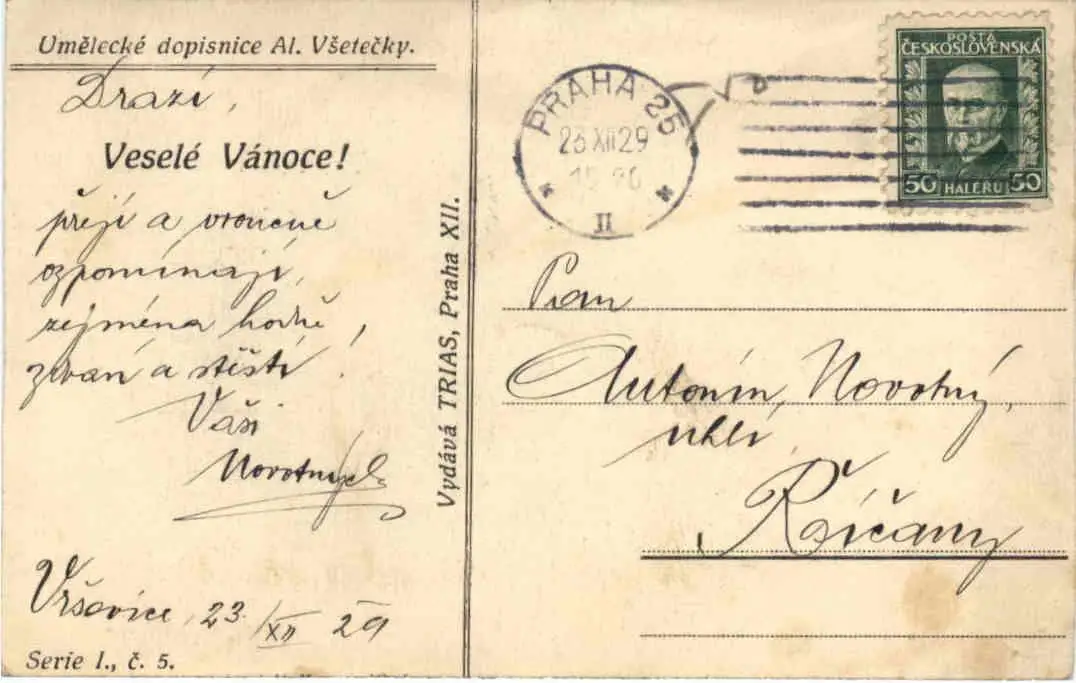 Umělecké dopisnice Al. Všetečky.
Drazí,
Veselé Vánoce!
přejí a vroucně
vzpomínají,
zejména hodně
zdraví a štěstí!
Vaši
Novotných
Vršovice, 23/XII 29
Serie I., č. 5.
Vydává TRIAS, Praha XII.
PRAHA 25
23 XII 29
II
POŠTA
ČESKOSLOVENSKÁ
50 HALÉŘŮ 50
Pan
Antonín Novotný,
uhlí
Říčany